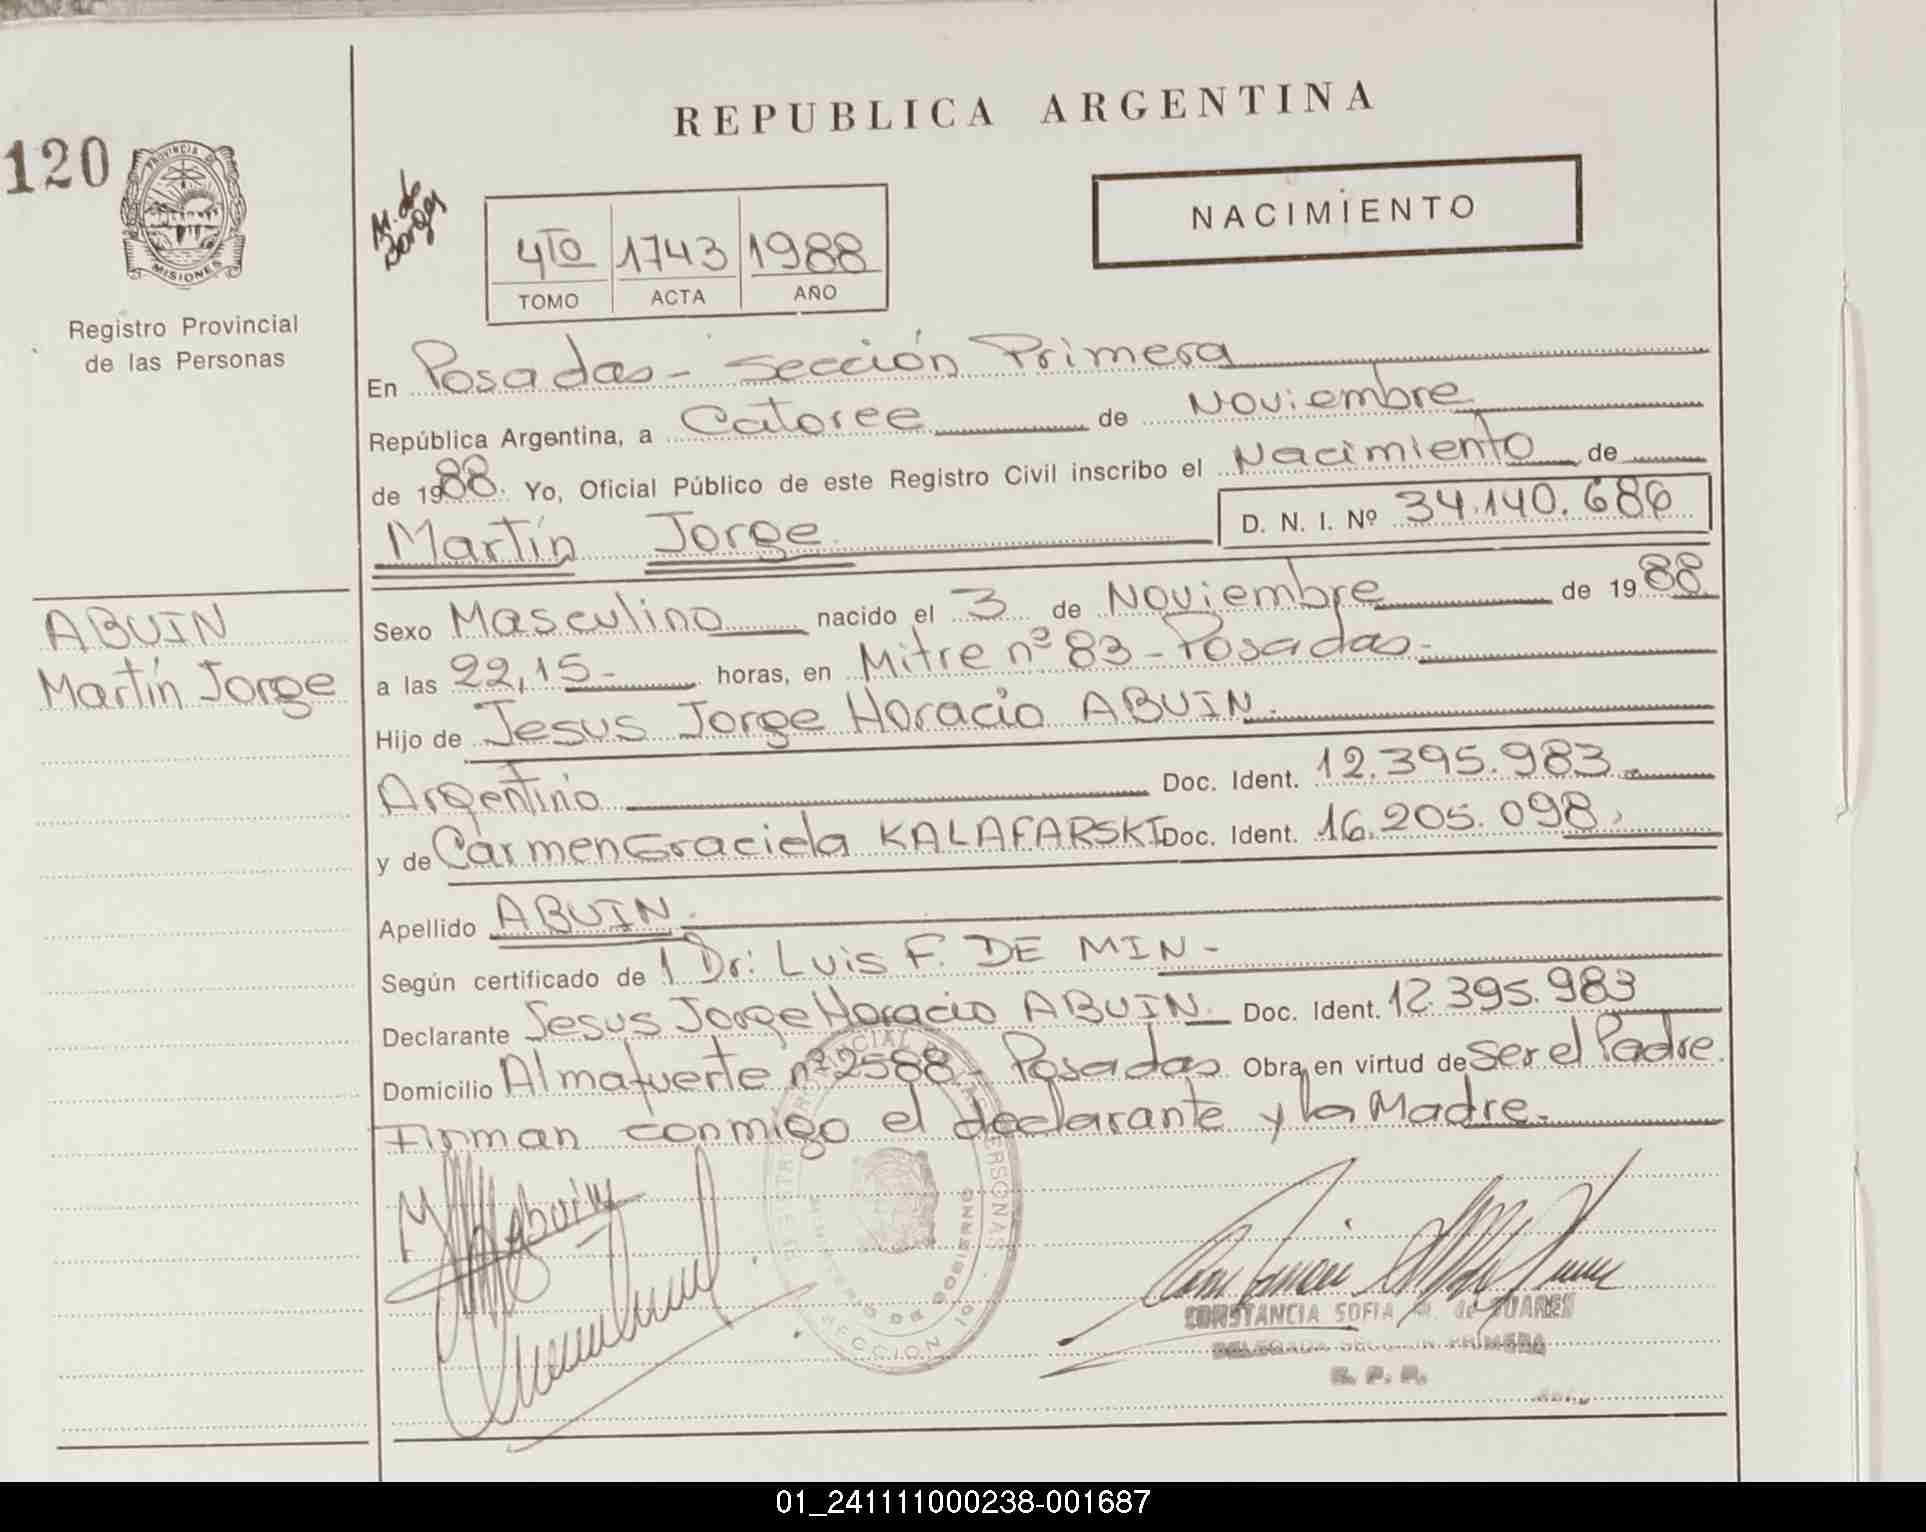 120
PROVINCIA DE
MISIONES
Registro Provincial
de las Personas
ABUIN
Martín Jorge
REPUBLICA ARGENTINA
NACIMIENTO
4TO 1743 1988
TOMO ACTA AÑO
En Posadas - Sección Primera
República Argentina, a Catorce de Noviembre
de 1988. Yo, Oficial Público de este Registro Civil inscribo el Nacimiento de
Martín Jorge D. N. I. Nº 34.140.686
Sexo Masculino nacido el 3 de Noviembre de 1988
a las 22,15- horas, en Mitre nº 83 - Posadas.-
Hijo de Jesus Jorge Horacio ABUIN.
Argentino Doc. Ident. 12.395.983.-
y de Carmen Graciela KALAFARSKI Doc. Ident. 16.205.098.
Apellido ABUIN.
Según certificado de 1 Dr: Luis F. DE MIN -
Declarante Jesus Jorge Horacio ABUIN. Doc. Ident. 12.395.983
Domicilio Almafuerte nº 2588 - Posadas Obra en virtud de ser el Padre.
Firman conmigo el declarante y la Madre.-
CONSTANCIA SOFIA M. de SUARES
DELEGADA SECCION PRIMERA
R. P. P.
MINISTERIO DE GOBIERNO
SECCION 1a
01_241111000238-001687